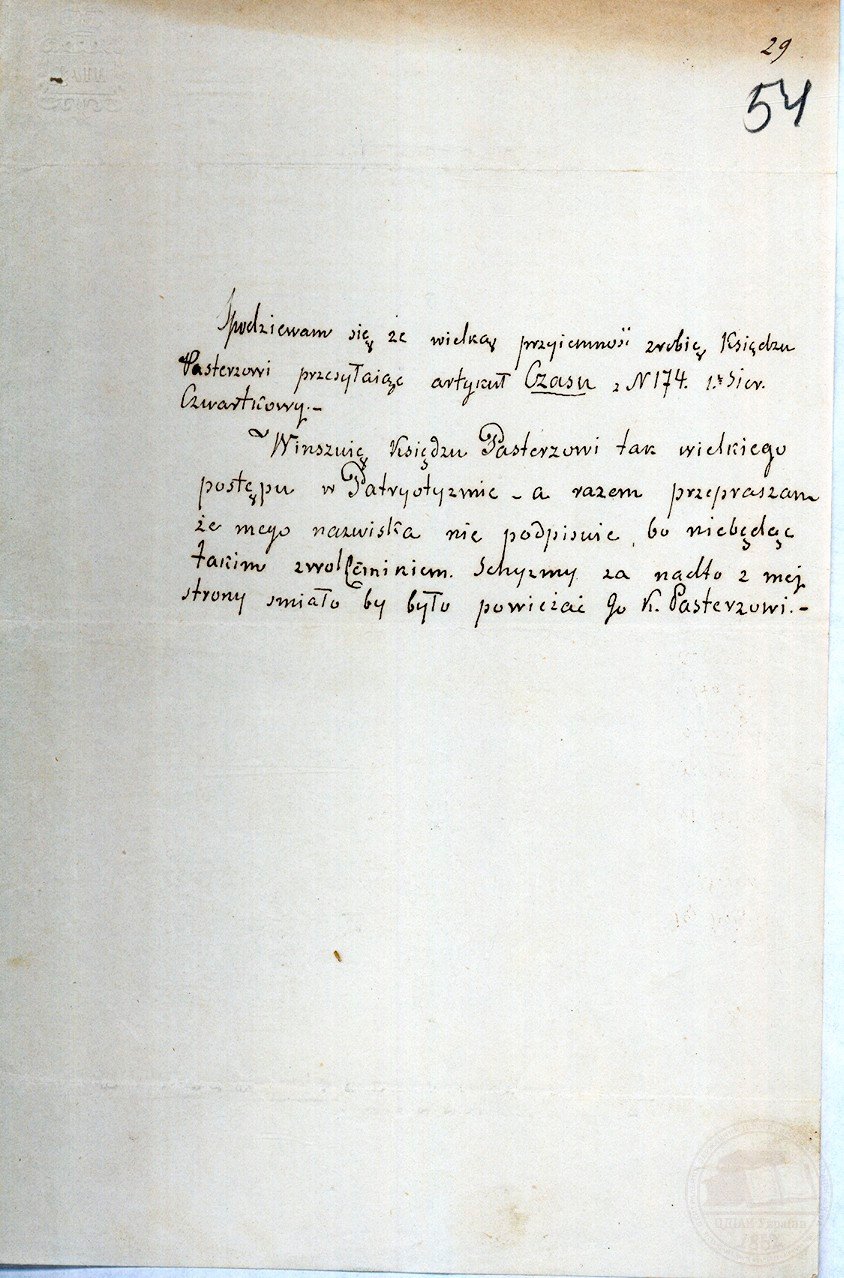 29
54
Spodziewam się że wielką przyiemność zrobię Księdzu
Pasterzowi przesyłaiąc artykuł Czasu z N 174. 1. Sier.
Czwartkowy.-
Winszuię Księdzu Pasterzowi tak wielkiego
postępu w Patryotyzmie - a razem przepraszam
że mego nazwiska nie podpisuie, bo niebędąc
takim zwolennikiem Schyzmy za nadto z mej
strony smiało by było powieżać go K. Pasterzowi.-
ЦДІАК України
1852